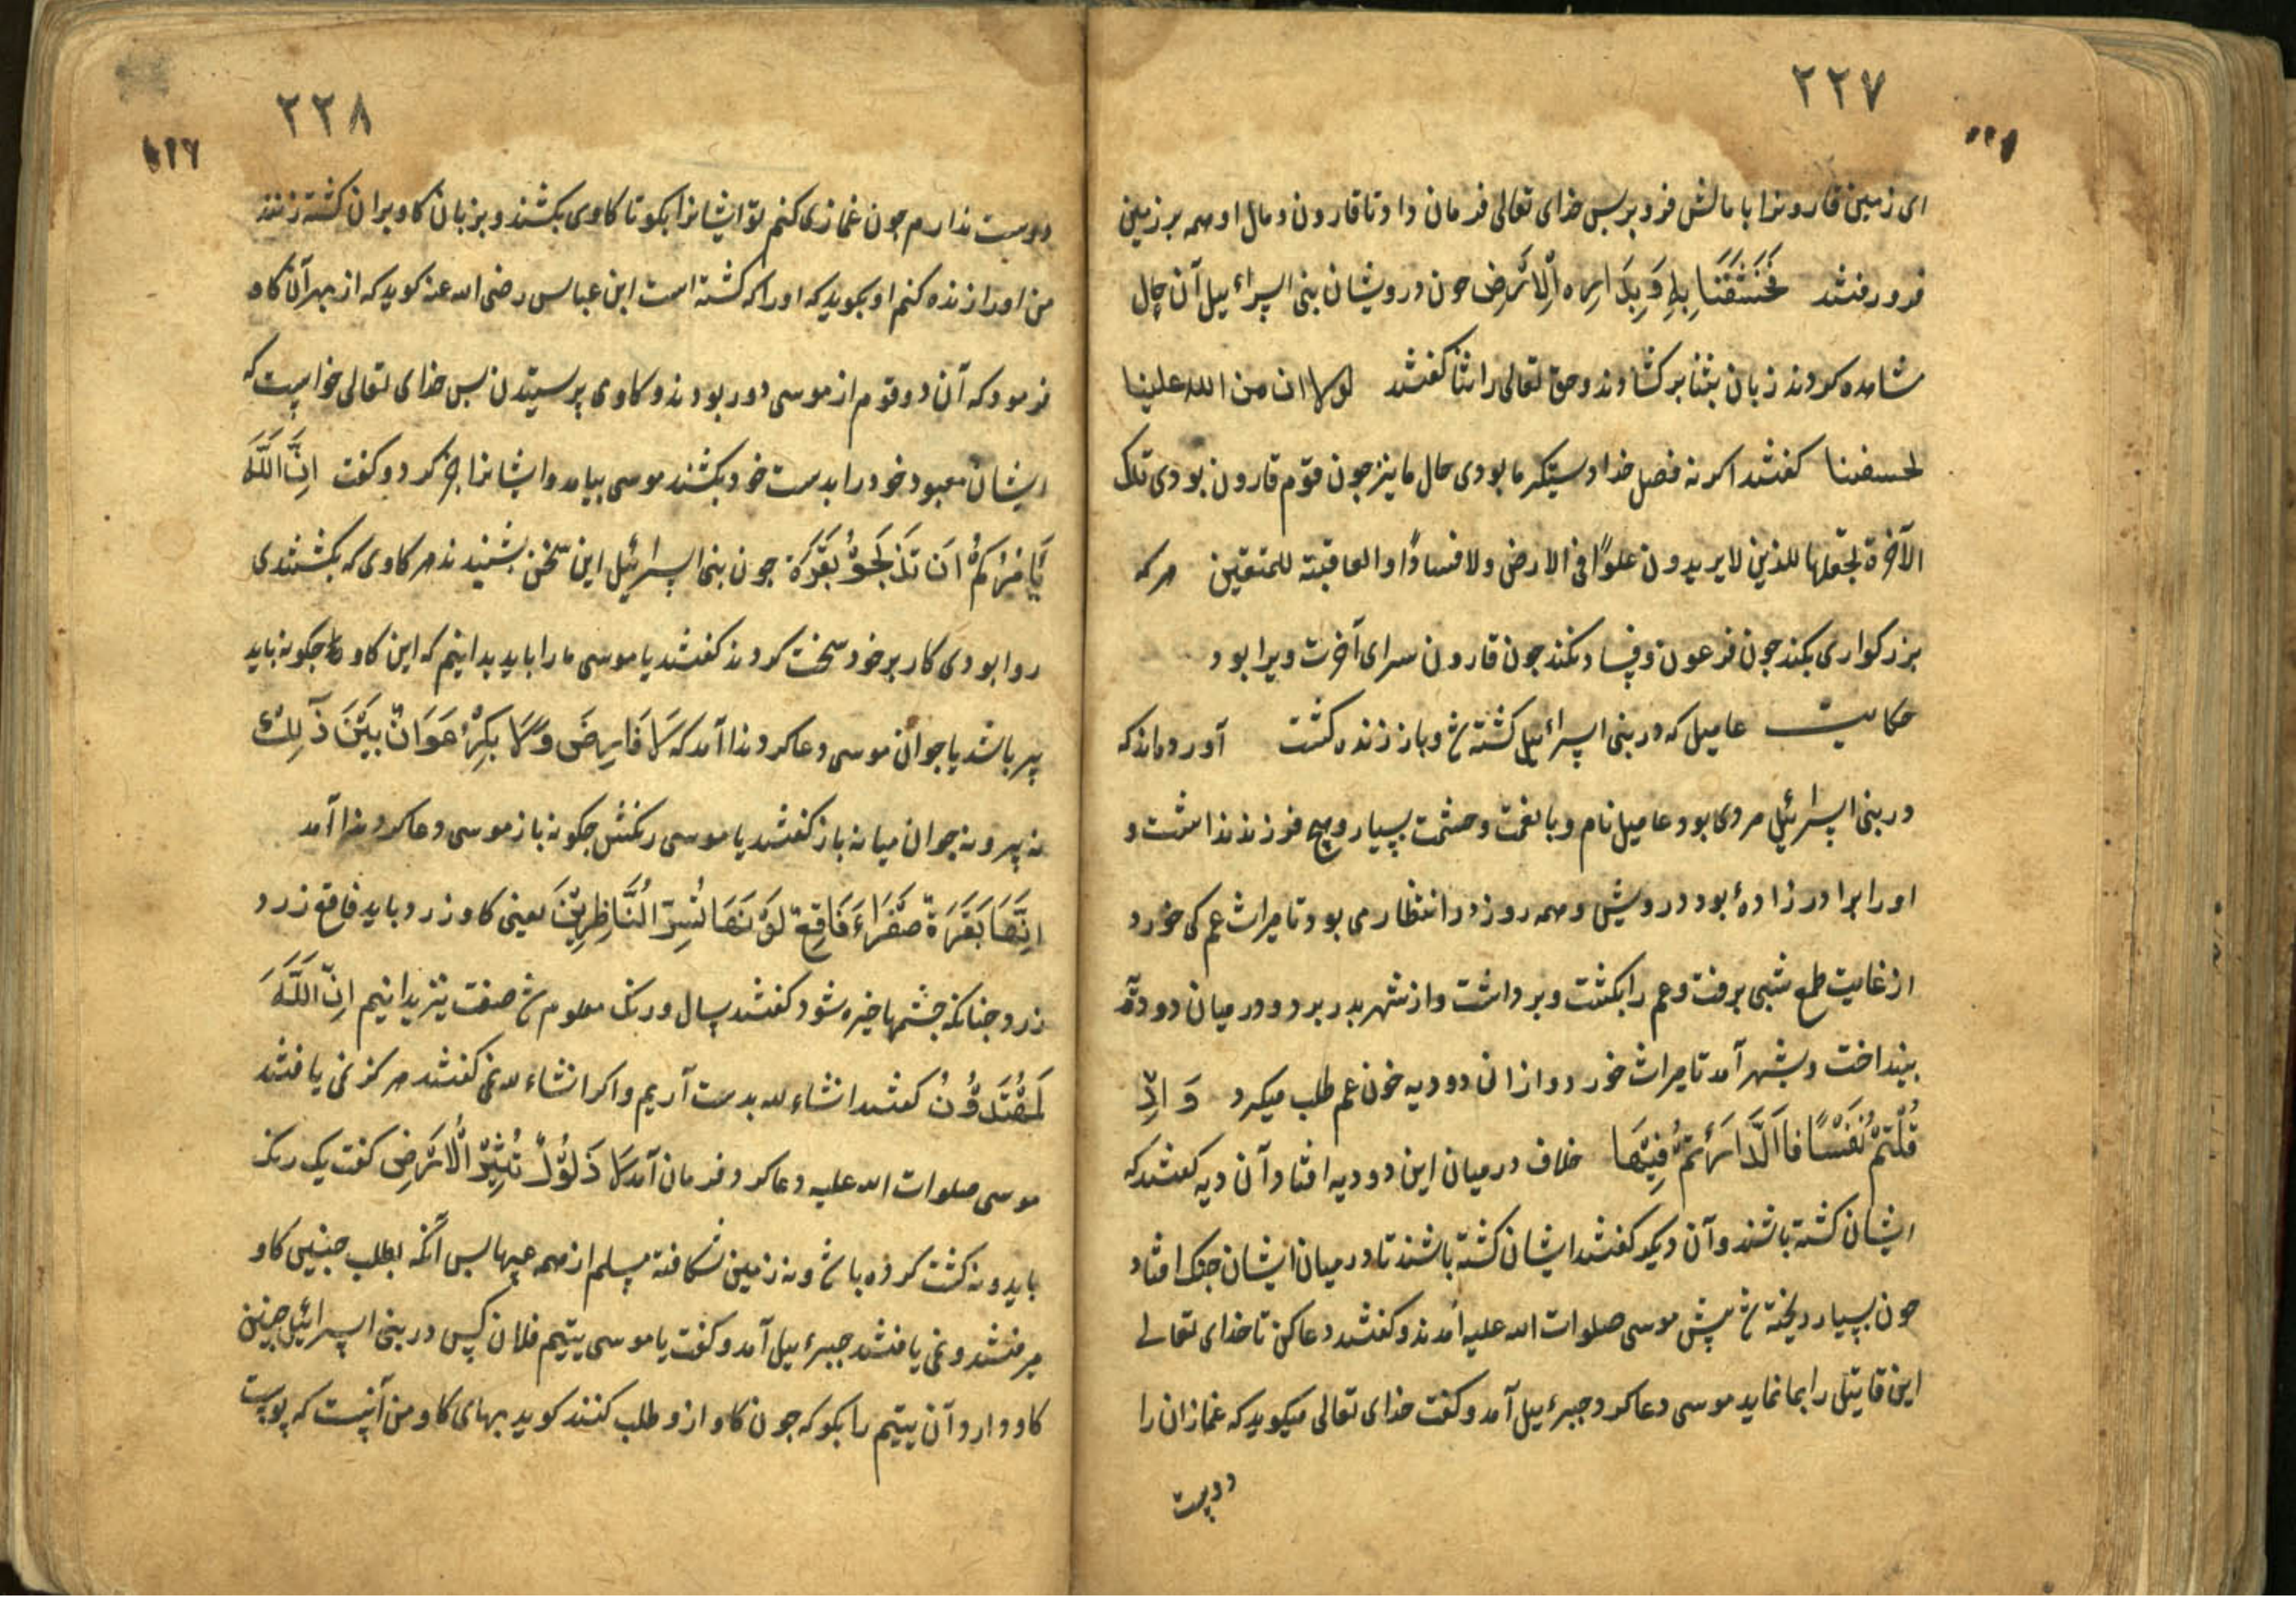 ٢٢٧
ای زمین قارونرا با مالش فرو بر بس خدای تعالی فرمان داد تا قارون و مال او همه بر زمین
فرو رفتند فَخَسَفْنَا بِهِ وَبِدَارِهِ الْاَرْضَ جون درویشان بنی اسراءییل آن حال
مشاهده کردند زبان بثنا بر کشادند و حق تعالی را ثنا کفتند لولا ان من الله علینا
لخسفنا کفتند اکر نه فضل خدا دستکیر ما بودی حال ما نیز جون قوم قارون بودی تلک
الآخرة نجعلها للذین لایریدون علوًا فی الارض ولا فسادًا والعاقبة للمتقین هر که
بزرکواری نکند جون فرعون و فساد نکند جون قارون سرای آخرت ویرا بود
حکایت عامیل که در بنی اسرائیل کشته شد و باز زنده کشت آورده‌اند که
در بنی اسرائیل مردی بود عامیل نام و با نعمت و حشمت بسیار و هیچ فرزند نداشت و
اورا برادر زادهٔ بود درویش و همه روز در انتظار می بود تا میراث عم کی خورد
از غایت طمع شبی برفت و عم را بکشت و برداشت و از شهر بدر برد و در میان دو دیه
بینداخت و بشهر آمد تا میراث خورد و از ان دو دیه خون عم طلب میکرد وَاِذْ
قَتَلْتُمْ نَفْسًا فَادَّارَأْتُمْ فِیْهَا خلاف در میان این دو دیه افتاد آن دیه کفتند که
ایشان کشته باشند و آن دیکر کفتند ایشان کشته باشند تا در میان ایشان جنک افتاد
خون بسیار ریخته شد پیش موسی صلوات الله علیه آمدند و کفتند دعا کن تا خدای تعالی
این قاتل را بما نماید موسی دعا کرد جبرءییل آمد و کفت خدای تعالی میکوید که غمازان را
دوست
٢٢٨
١٩٦
دوست ندارم جون غمازی کنم تو ایشانرا بکو تا کاوی بکشند و بزبان کاو بران کشته زنند
من اورا زنده کنم او بکوید که اورا که کشته است ابن عباس رضی الله عنه کوید که از بهر آن کاو
فرمود که آن دو قوم از موسی دور بودند و کاو می پرستیدن بس خدای تعالی خواست که
ایشان معبود خود را بدست خود بکشند موسی بیامد و ایشانرا خبر کرد و کفت اِنَّ اللّٰهَ
یَأْمُرُکُمْ اَنْ تَذْبَحُوْا بَقَرَةً جون بنی اسرائیل این سخن بشنیدند هر کاوی که بکشتندی
روا بودی کار بر خود سخت کردند کفتند یا موسی ما را باید بدانیم که این کاو جکونه باید
پیر باشد یا جوان موسی دعا کرد ندا آمد که لَا فَارِضٌ وَلَا بِکْرٌ عَوَانٌ بَیْنَ ذٰلِکَ
نه پیر و نه جوان میانه باز کفتند یا موسی رنکش جکونه باز موسی دعا کرد ندا آمد
اِنَّهَا بَقَرَةٌ صَفْرَاءُ فَاقِعٌ لَوْنُهَا تَسُرُّ النَّاظِرِیْنَ یعنی کاو زرد باید فاقع زرد
زرد جنانکه جشمها خیره شود کفتند سال و رنک معلوم شد صفت نیز بدانیم اِنْ اللّٰهُ
لَمُهْتَدُوْنَ کفتند انشاء لله بدست آریم و اکر انشاء لله نمی کفتند هرکز نمی یافتند
موسی صلوات الله علیه دعا کرد فرمان آمد لَا ذَلُوْلٌ تُثِیْرُ الْاَرْضَ کفت یک رنک
باید و نه کشت کرده باشد و نه زمین شکافته مسلم از همه عیبها بس آنکه بطلب جنین کاو
برفتند و نمی یافتند جبرءییل آمد و کفت یا موسی یتیم فلان کس در بنی اسرائیل جنین
کاو دارد آن یتیم را بکو که جون کاو ازو طلب کنند کوید بهای کاو من آنست که پوست